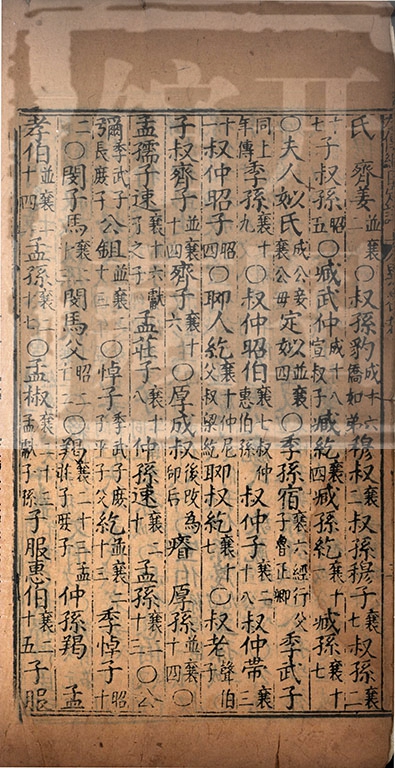 氏齊姜並襄二○叔孫豹成十六僑如弟穆叔襄二叔孫穆子襄七叔孫襄二
十七子叔孫昭五○臧武仲成十八宣叔子臧紇襄四臧孫紇襄十一臧孫襄十七
○夫人姒氏成公妾襄公母定姒並襄四○季孫宿襄六經行父子魯正卿季武子
同上年傳季孫襄十九○叔仲昭伯襄七叔仲惠伯孫叔仲子襄二十八叔仲帶襄三
十一叔仲昭子昭十○聊人紇襄十仲尼父叔梁紇聊叔紇襄十七○叔老聲伯子
子叔齊子並襄十四齊子襄十六○厚成叔後改為郈后瘠厚孫並襄十四○
孟孺子速襄十六獻子之子孟莊子襄十八仲孫速襄二十孟孫襄二十三○公
彌季武子長庶子公鉏並襄二十三○悼子季武子庶子平子父紇並襄二十三季悼子昭十
二○閔子馬襄二十三閔馬父昭二十二○羯襄二十三孟莊子庶子仲孫羯孟
孝伯並襄二十四孟孫襄二十七○孟椒襄二十三孟獻子孫子服惠伯襄二十五子服